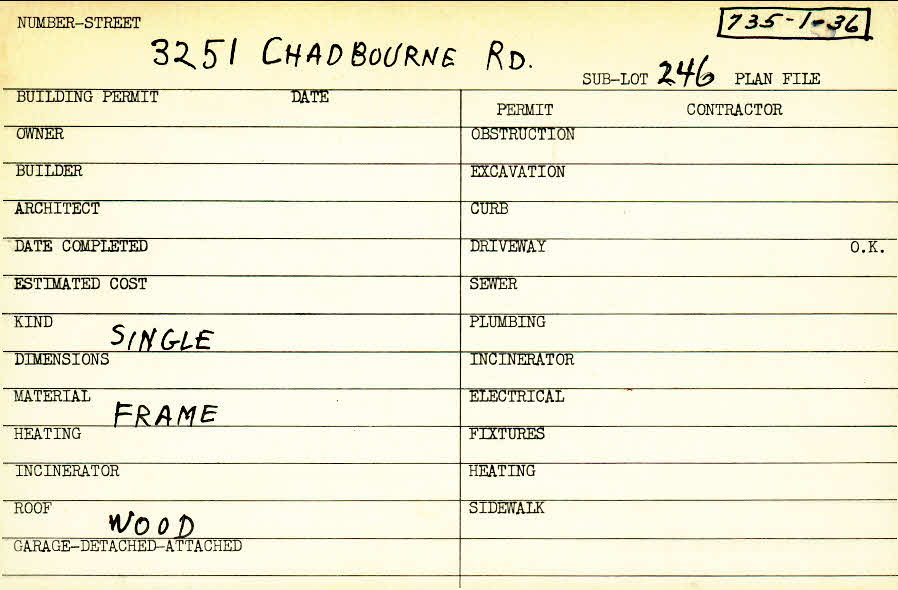 NUMBER-STREET
735-1-36
3251 CHADBOURNE RD.
SUB-LOT 246 PLAN FILE
BUILDING PERMIT DATE
PERMIT CONTRACTOR
OWNER
OBSTRUCTION
BUILDER
EXCAVATION
ARCHITECT
CURB
DATE COMPLETED
DRIVEWAY O.K.
ESTIMATED COST
SEWER
KIND SINGLE
PLUMBING
DIMENSIONS
INCINERATOR
MATERIAL FRAME
ELECTRICAL
HEATING
FIXTURES
INCINERATOR
HEATING
ROOF WOOD
SIDEWALK
GARAGE-DETACHED-ATTACHED